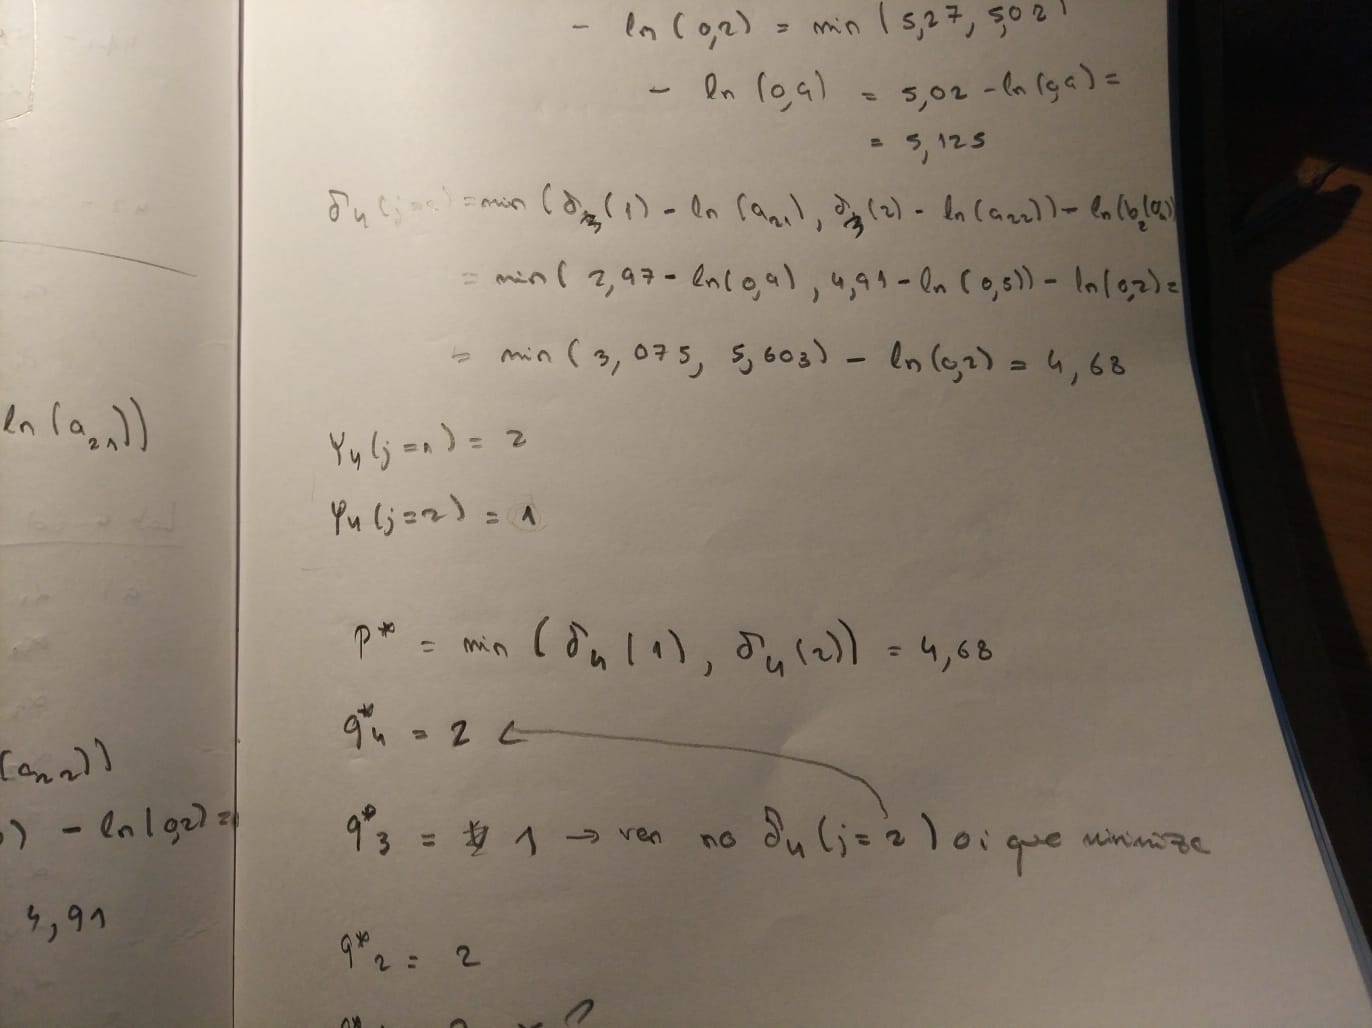 - ln (0,2) = min (5,27, 5,02)
- ln (0,9) = 5,02 - ln (0,9) =
= 5,125
δ4 (j=2) = min (δ3(1) - ln (a21), δ3(2) - ln (a22)) - ln (b2(o4))
= min ( 2,97 - ln(0,9), 4,91 - ln (0,5)) - ln(0,2) =
= min (3,075, 5,603) - ln (0,2) = 4,68
ln (a21))
Ψ4 (j=1) = 2
Ψ4 (j=2) = 1
P* = min (δ4 (1), δ4 (2)) = 4,68
q*4 = 2 ←
(a22))
) - ln(0,2) =
q*3 = 1 → ver no δ4 (j=2) o i que minimiza
4,91
q*2 = 2